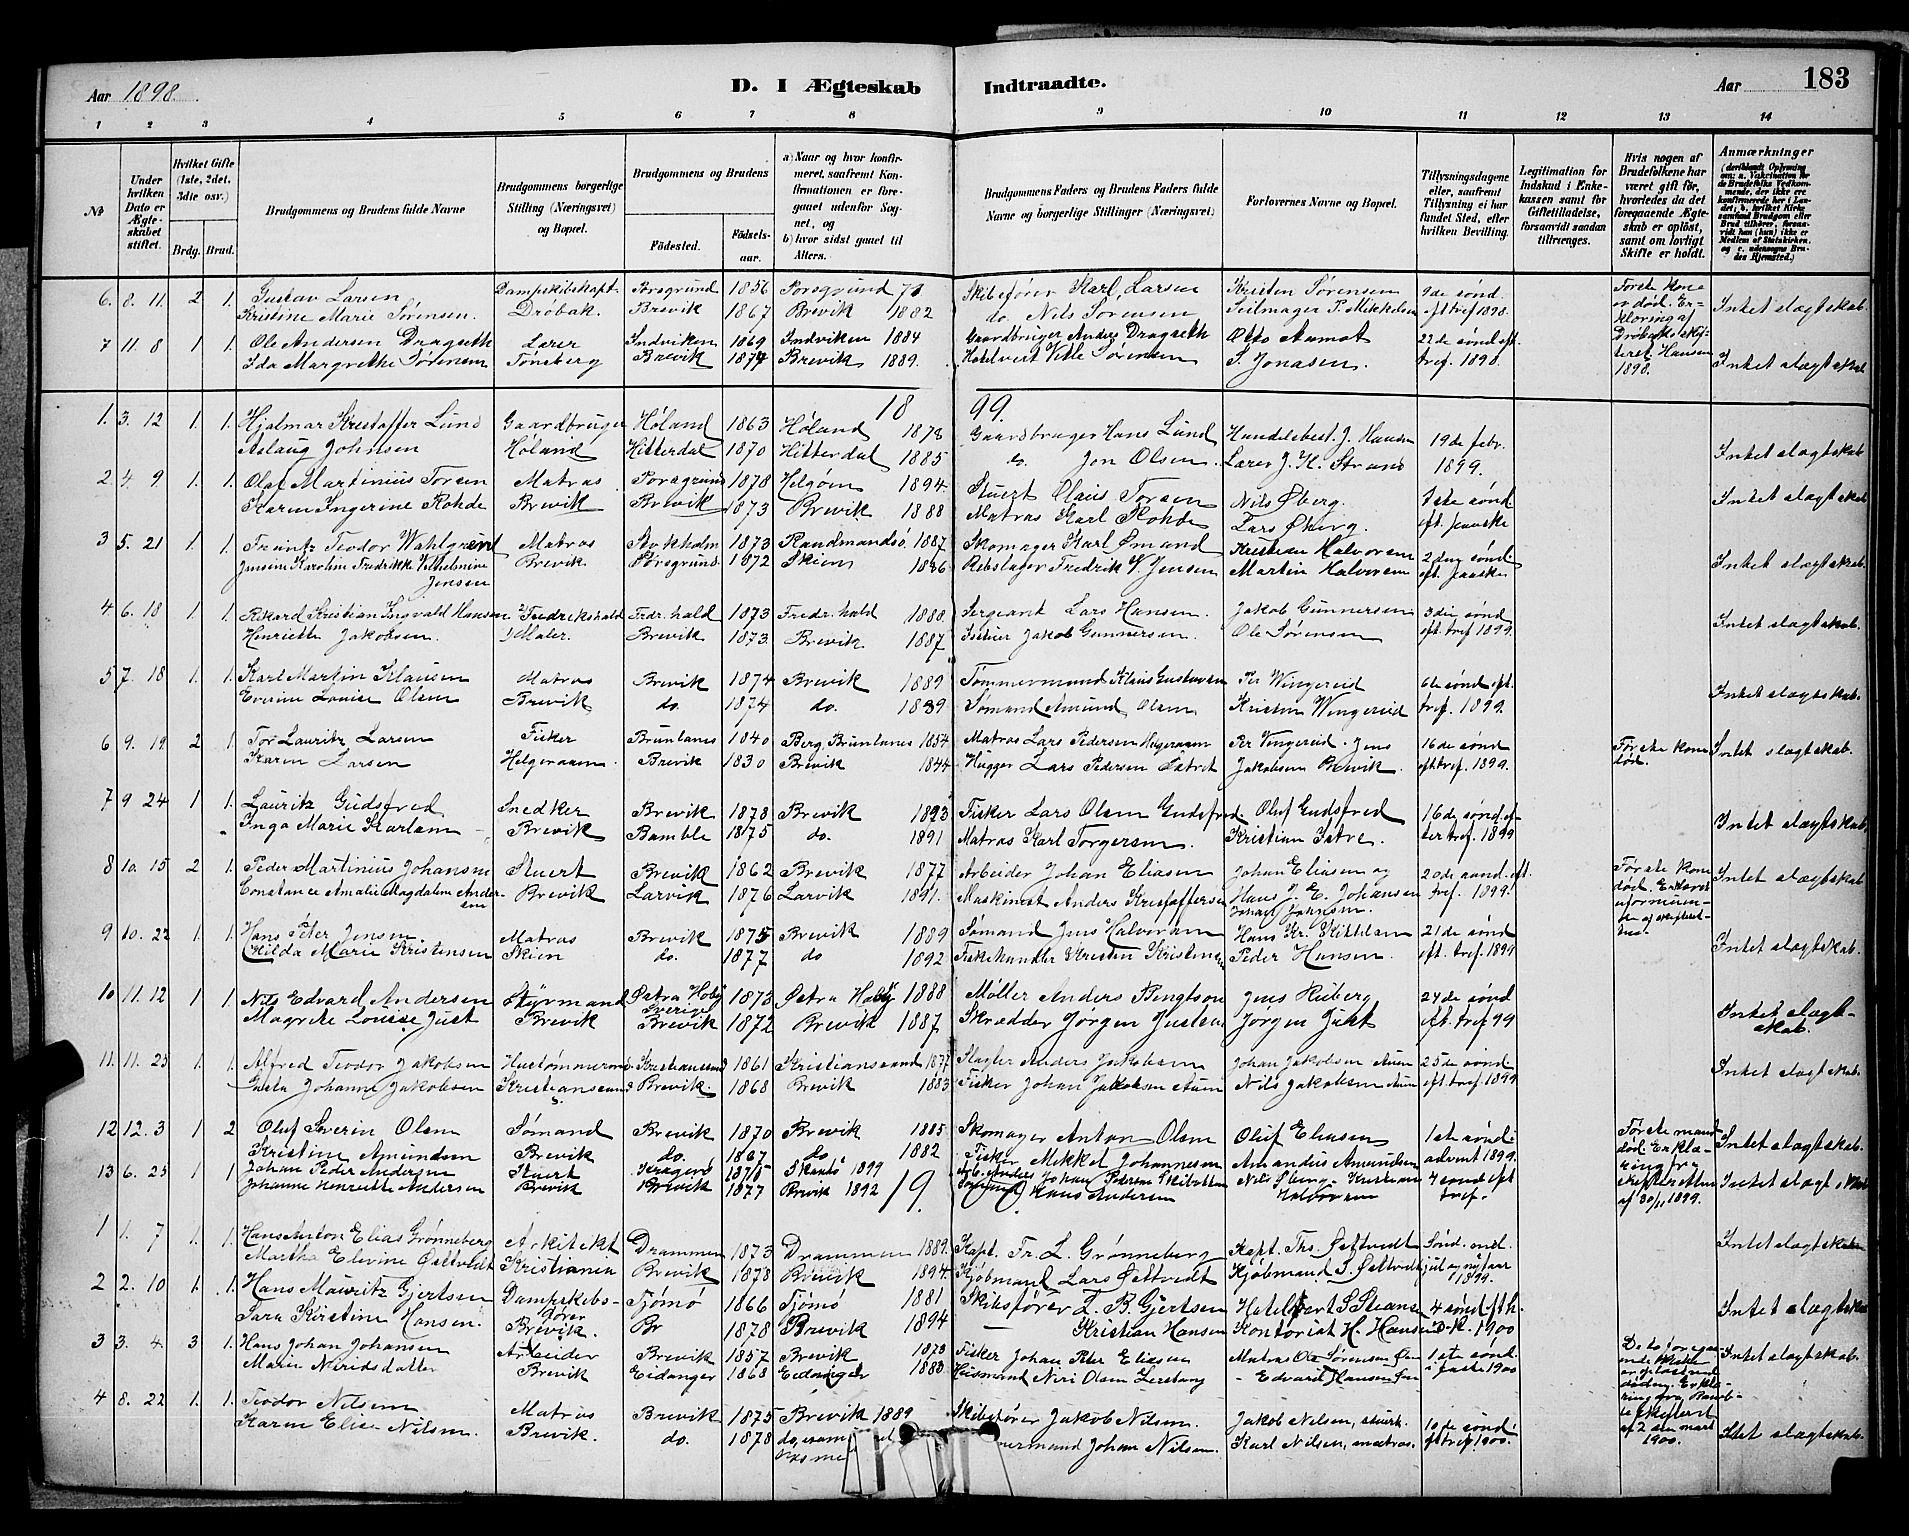 Aar 1898. D. I Ægteskab Indtraadte. Aar 183
1 2 3 4 5 6 7 8 9 10 11 12 13 14
No
Under hvilken Dato er Ægteskabet stiftet.
Hvilket Gifte (1ste, 2det, 3die osv.)
Brdg. Brud.
Brudgommens og Brudens fulde Navne
Brudgommens borgerlige Stilling (Næringsvei) og Bopæl.
Brudgommens og Brudens
Fødested. Fødselsaar.
a) Naar og hvor konfirmeret, saafremt Konfirmationen er foregaaet udenfor Sognet, og
b) hvor sidst gaaet til Alters.
Brudgommens Faders og Brudens Faders fulde Navne og borgerlige Stillinger (Næringsvei)
Forlovernes Navne og Bopæl.
Tillysningsdagene eller, saafremt Tillysning ei har fundet Sted, efter hvilken Bevilling.
Legitimation for Indskud i Enkekassen samt for Giftetilladelse, forsaavidt saadan tiltrænges.
Hvis nogen af Brudefolkene har været gift før, hvorledes da det foregaaende Ægteskab er opløst, samt om lovligt Skifte er holdt.
Anmærkninger
6. 8. 11. 2 1. Gustav Larsen Dampskibskapt. Porsgrund 1856 Porsgrund Skibsfører Karl Larsen Kristen Sørensen 9de sønd. Første kone Intet slægtskab.
Kristine Marie Sørensen. Drøbak. Brevik 1867 Brevik 1882 do. Nils Sørensen Seilmager P. Mikkelsen eft tref 1898. er død. Er-
7 11. 8 1 1. Ole Andersen Dragseth Lærer Indviken 1869 Indviken 1884 Gaardbruger Anders Dragseth Otto Aamot 22de sønd eft. klæring af
Ida Margrethe Sørensen Tønsberg Brevik 1874 Brevik 1889. Hotelvert Sørensen S. Jonasen. tref. 1898. 1898. Intet slægtskab
1899.
1. 3. 12 1. 1. Hjalmar Kristoffer Lund Gaardbruger Høland 1863 Høland 1878 Gaardbruger Hans Lund Handelsbest. J. Hansen 19de febr. Intet slægtskab
Aslaug Johnsen Høland Hitterdal 1870 Hitterdal 1885 do. Jon Olsen. Lærer J. H. Strand 1899.
2. 4. 9 1. 1. Olaf Martinius Torsen Matros Porsgrund 1878 Helgøen 1894. Stuert Olaus Torsen Nils Øberg. 1ste sønd Intet slægtskab
Karen Ingerine Rohde Brevik Brevik 1873 Brevik 1888 Matros Karl Rohde Lars Øberg. eft. paaske
3 5. 21 1. 1. Teodor Wahlgren Matros Stokholm 1873 1887 Skomager Karl Kristian Halvorsen 2den sønd. Intet slægtskab.
Jensine Karoline Fredrikk Vilhelmine Brevik Porsgrund 1872 Skien 1886 Rebslager Fredrik V. Jensen Martin Halvorsen eft. paaske
Jensen
4 6. 18 1. 1. Rikard Kristian Ingvald Hansen Fredrikshald Fredr. hald 1873 Fredr. hald 1888 Sergeant Lars Hansen. Jakob Gunnersen 3die sønd Intet slægtskab.
Henriette Jakobsen. Maler. Brevik 1873. Brevik 1887 Jakob Gunnersen. Ole Sørensen eft. tref 1899.
5 7. 18 1. 1. Karl Martin Klausen Matros Brevik 1874 Brevik 1889 Tømmermand Klaus Gustavsen Per Wingereid 6te sønd eft. Intet slægtskab.
Everine Louise Olsen Brevik do. 1874 do. 1889 Sømand Amund Olsen Kristen Wingereid tref. 1899.
6 9. 19 2 1. Tor Lauritz Larsen Fisker Brunlanes 1840 Berg, Brunlanes 1854 Matros Lars Pedersen Helgeraaen Per Vingereid. Jens 16de sønd Første kone Intet slægtskab.
Karen Larsen Helgeraaen. Brevik 1830 Brevik 1844 Hugger Lars Pedersen Jakobsen Brevik eft. tref. 1899. død.
7 9 24 1 1. Lauritz Gudsfred Snedker Brevik 1878 Brevik 1893 Fisker Lars Olsen Gudsfred. Oluf Gudsfred 16de sønd. ef- Intet slægtskab
Inga Marie Karlsen Brevik Bamble 1875 do. 1891 Matros Karl Torgersen. Kristian ter tref. 1899
8 10. 15 2 1. Peder Martinius Johansen Stuert Brevik 1862 Brevik 1877 Arbeider Johan Eliasen Johan Eliasen og 20de sønd. eft. Første kone Intet slægtskab
Constance Amalie Magdalene Ander- Brevik Larvik 1876 Larvik 1891. Maskinist Anders Kristoffersen Hans J. E. Johansen tref. 1899. død.
sen
9 10. 22 1. 1. Hans Peter Jensen Matros Brevik 1875 Brevik 1889 Sømand Jens Halvorsen Hans Kr. Kittelsen 21de sønd Intet slægtskab.
Hilda Marie Kristensen Skien do. 1877 do 1892 Fiskehandler Kristen Kristensen Peder Hansen. eft. tref. 1899
10 11. 12 1 1. Nils Edvard Andersen Styrmand Østra Hoby 1873 Østra Hoby 1888 Møller Anders Bengtson Jens 24de sønd Intet slægt-
Sverige
Magrete Louise Just Brevik Brevik 1872 Brevik 1887 Skrædder Jørgen Justsen Jørgen Just eft. tref 99 skab.
11. 11. 25 1. 1. Alfred Teodor Jakobsen Hustømmermand Kristianssand 1861 Kristianssand 1877 Slagter Anders Jakobsen Johan Jakobsen 25de sønd Intet slægtskab.
Johanne Jakobsen Kristianssand Brevik. 1868 Brevik 1883 Fisker Johan Jakobsen Nils Jakobsen eft. tref. 1899
12 12. 3 1 2 Oluf Severin Olsen Sømand Brevik 1870 Brevik 1885 Skomager Anton Olsen Oluf Eliasen 1ste sønd. Første mand Intet slægtskab.
Kristine Amundsen Brevik do. 1867 do. 1882 Fisker Mikkel Johannesen Amandus Amundsen advent 1899. død. Erklæ-
13 6. 25 1 1 Johan Peder Andersen Stuert Kragerø Johan Pedersen Nils Øberg - Kristian 7 sønd eft ring fra
Johanne Henriette Andersen Brevik Brevik 1877 Brevik 1892 Hans Andersen Halvorsen tref. af 30/11 1899. Intet slægtskab
19.
1 1. 7 1. 1. Hans Anton Elias Grønneberg Arkitekt Drammen 1873 Drammen 1889. Kapt. Fr. L. Grønneberg Kapt. Ths. Østtvedt Sønd. ml. Intet slægtskab
Martha Elevine Østtvedt Kristiania Brevik 1878 Brevik 1894. Kjøbmand Lars Østtvedt Kjøbmand S. Østtvedt jul og nytaar
1899.
2 2. 10 1. 1. Hans Mauritz Gjertsen Dampskibs- Tjømø 1866 Tjømø 1881 Skibsfører L. B. Gjertsen Hotelvert S. 4 sønd. eft h. Intet slægtskab
fører
Sara Kirstine Hansen. Brevik. Br 1878 Brevik 1894 Kristian Hansen Kontorist H. Hansen 3 k. 1900
3 3. 4 3 1. Hans Johan Johansen Arbeider Brevik 1857 Brevik 1873 Fisker Johan Peter Eliasen Matros Ole Sørensen 1ste sønd De to forega- Intet slægtskab.
Marie Nirisdatter Brevik Eidanger 1868 Eidanger 1883 Husmand Niri Olsen Edvard Hansen i faste 1900
4 8. 22 1. 1. Teodor Nilsen Matros Brevik 1875 Brevik 1889 Skibsfører Jakob Nilsen. Jakob Nilsen, stuert. 10de sønd. af 2den mart
Karen Elise Nilsen. Brevik. do. 1878 do. Johan Nilsen. Karl Nilsen, matros. eft tref. 1900. 1900. Intet slægtskab.